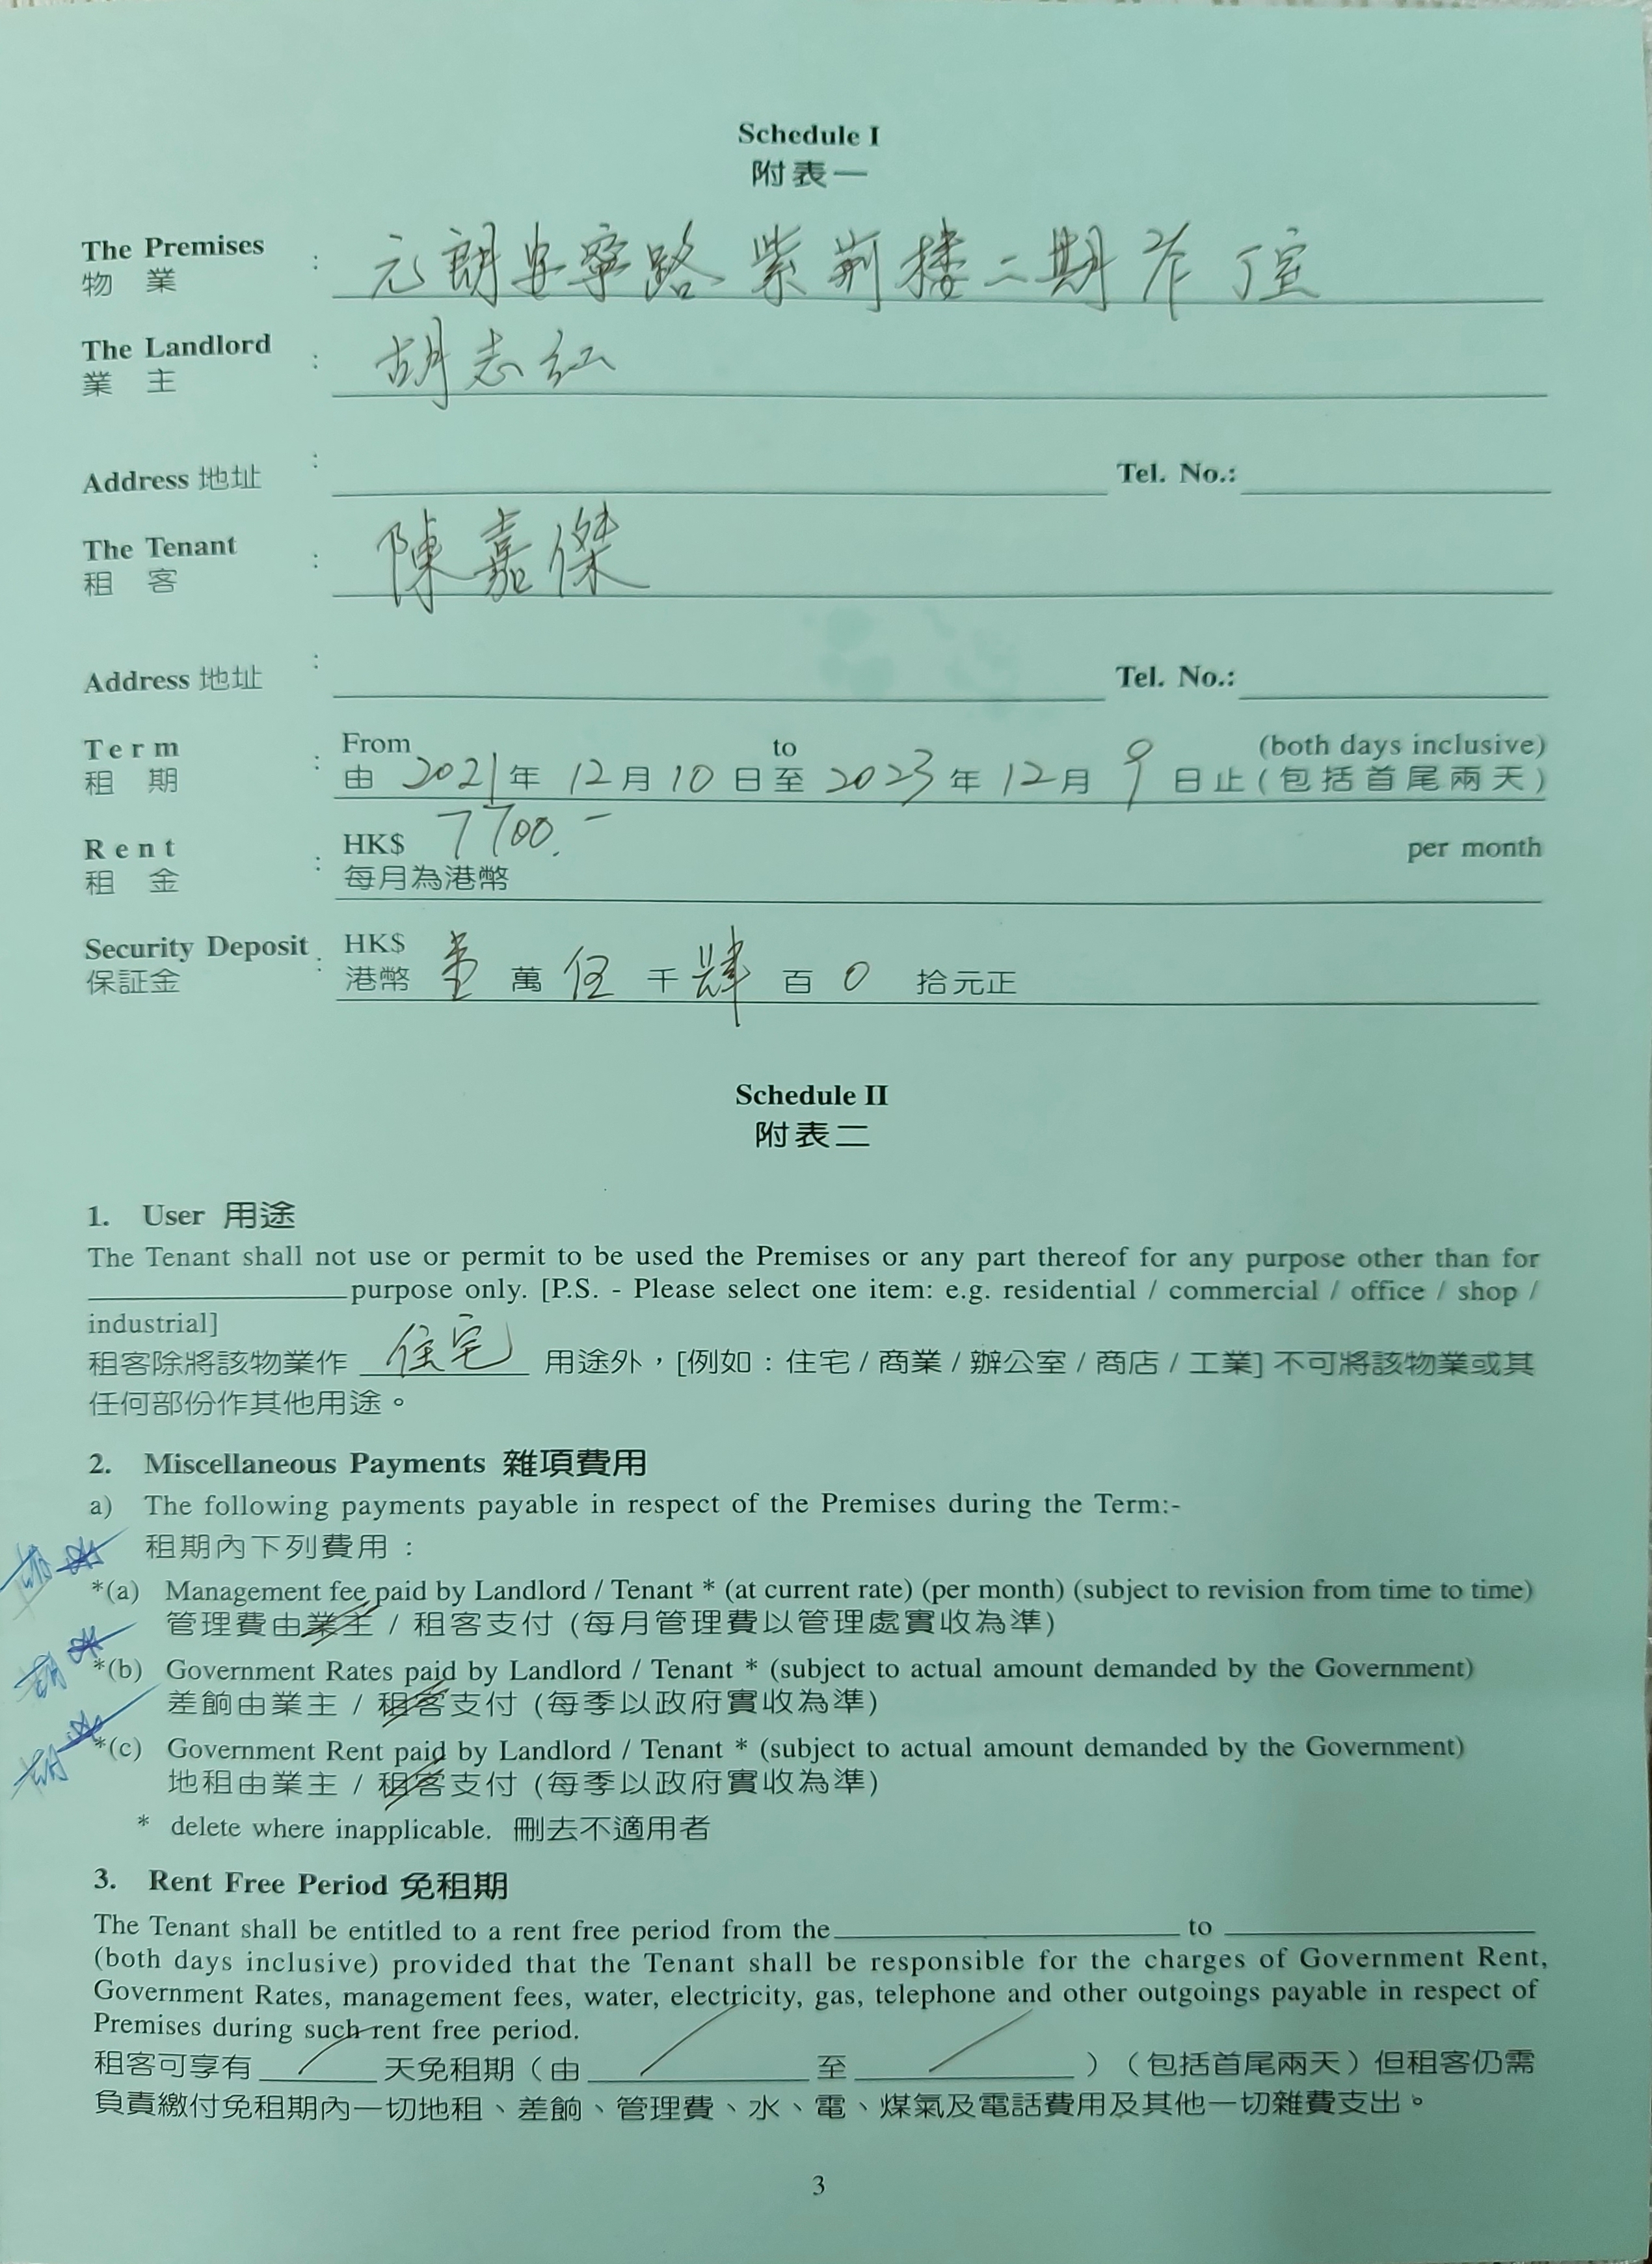 Schedule I
附表一
The Premises
物 業 : 元朗安寧路紫荊樓二期 丁室
The Landlord
業 主 : 胡志红
Address 地址 : Tel. No.:
The Tenant
租 客 : 陳嘉傑
Address 地址 : Tel. No.:
Term : From to (both days inclusive)
租 期 由 2021 年 12 月 10 日至 2023 年 12 月 9 日止 (包括首尾兩天)
Rent : HK$ 7700.- per month
租 金 每月為港幣
Security Deposit : HK$
保証金 港幣 壹 萬 伍 千 肆 百 0 拾元正
Schedule II
附表二
1. User 用途
The Tenant shall not use or permit to be used the Premises or any part thereof for any purpose other than for
purpose only. [P.S. - Please select one item: e.g. residential / commercial / office / shop /
industrial]
租客除將該物業作 住宅 用途外，[例如：住宅 / 商業 / 辦公室 / 商店 / 工業] 不可將該物業或其
任何部份作其他用途。
2. Miscellaneous Payments 雜項費用
a) The following payments payable in respect of the Premises during the Term:-
租期內下列費用：
*(a) Management fee paid by Landlord / Tenant * (at current rate) (per month) (subject to revision from time to time)
管理費由業主 / 租客支付 (每月管理費以管理處實收為準)
*(b) Government Rates paid by Landlord / Tenant * (subject to actual amount demanded by the Government)
差餉由業主 / 租客支付 (每季以政府實收為準)
*(c) Government Rent paid by Landlord / Tenant * (subject to actual amount demanded by the Government)
地租由業主 / 租客支付 (每季以政府實收為準)
* delete where inapplicable. 刪去不適用者
3. Rent Free Period 免租期
The Tenant shall be entitled to a rent free period from the to
(both days inclusive) provided that the Tenant shall be responsible for the charges of Government Rent,
Government Rates, management fees, water, electricity, gas, telephone and other outgoings payable in respect of
Premises during such rent free period.
租客可享有 / 天免租期（由 / 至 / ）（包括首尾兩天）但租客仍需
負責繳付免租期內一切地租、差餉、管理費、水、電、煤氣及電話費用及其他一切雜費支出。
3